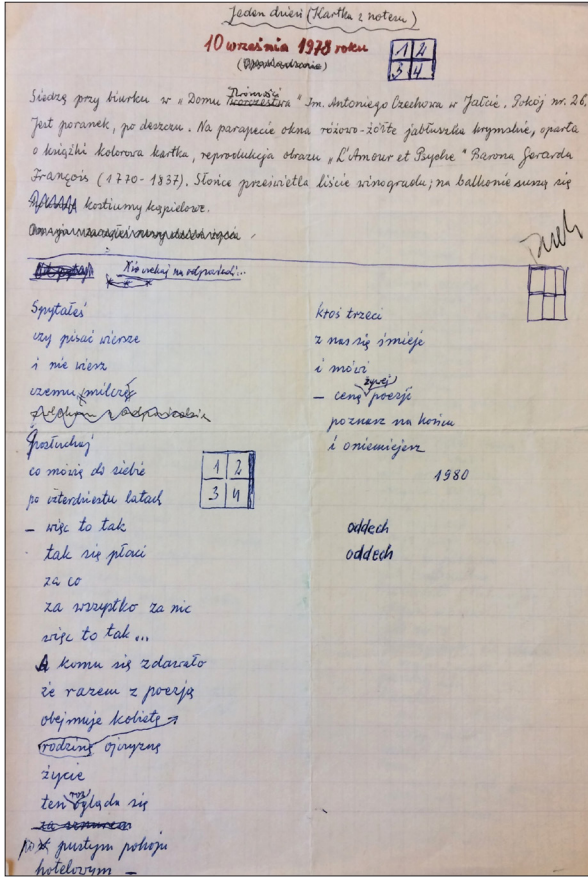 Jeden dzień (Kartka z notesu)
10 września 1978 roku
(Opowiadanie)
1 2
3 4
Siedzę przy biurku w „Domu Twórczości" Im. Antoniego Czechowa w Jałcie. Pokój nr. 26,
Jest poranek, po deszczu. Na parapecie okna różowo-żółte jabłuszka krymskie, oparta
o książki kolorowa kartka, reprodukcja obrazu „L'Amour et Psyche" Barona Gerarda
François (1770-1837). Słońce prześwietla liście winogradu; na balkonie suszą się
kostiumy kąpielowe.
Kto czeka na odpowiedź...
Spytałeś
czy pisać wiersze
i nie wiesz
czemu milczę
Posłuchaj
co mówię do siebie
po czterdziestu latach
– więc to tak
tak się płaci
za co
za wszystko za nic
więc to tak...
A komu się zdawało
że razem z poezją
obejmuje kobietę
rodzinę ojczyznę
życie
ten rozgląda się
po pustym pokoju
hotelowym –
1 2
3 4
ktoś trzeci
z nas się śmieje
i mówi
– cenę żywej poezji
poznasz na końcu
i oniemiejesz
1980
oddech
oddech